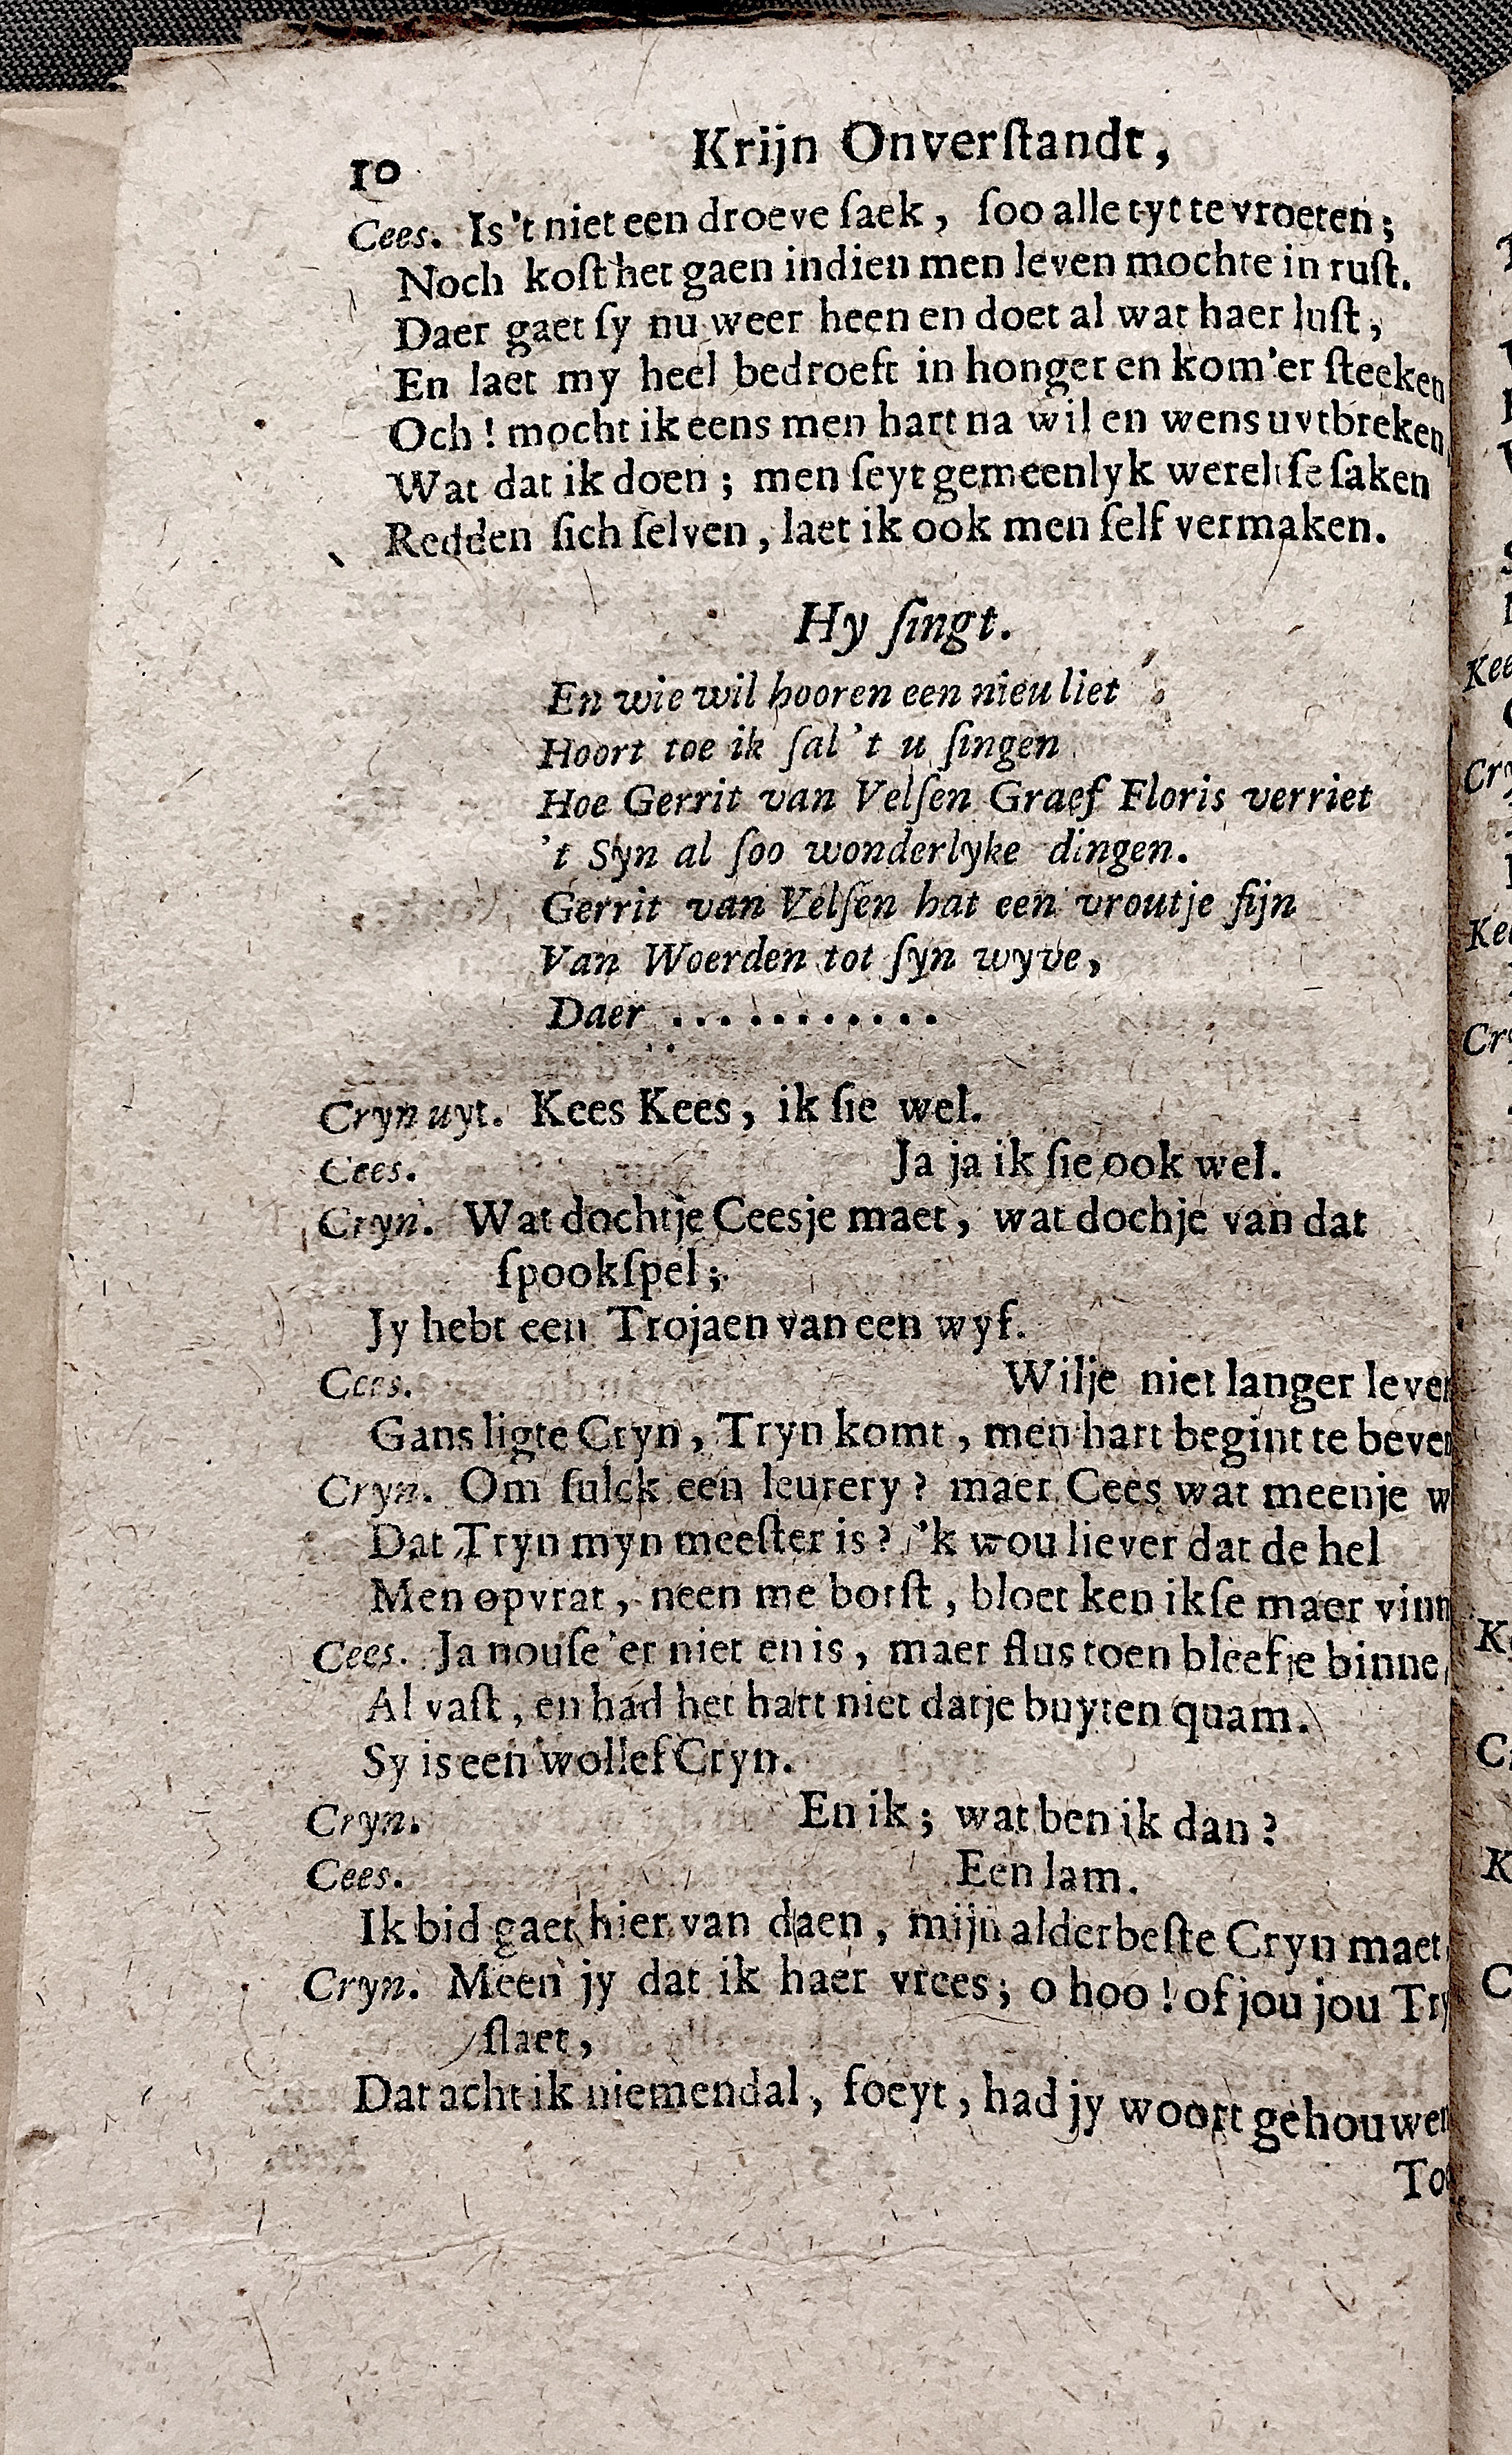 10 Krijn Onverſtandt,
Cees. Is 't niet een droeve ſaek, ſoo alle tyt te vroeten;
Noch koſt het gaen indien men leven mochte in ruſt.
Daer gaet ſy nu weer heen en doet al wat haer luſt,
En laet my heel bedroeft in honger en kom'er ſteeken
Och! mocht ik eens men hart na wil en wens uytbreken
Wat dat ik doen; men ſeyt gemeenlyk wereltſe ſaken
Redden ſich ſelven, laet ik ook men ſelf vermaken.
Hy ſingt.
En wie wil hooren een nieu liet
Hoort toe ik ſal 't u ſingen
Hoe Gerrit van Velſen Graef Floris verriet
't Syn al ſoo wonderlyke dingen.
Gerrit van Velſen hat een vroutje fijn
Van Woerden tot ſyn wyve,
Daer ...........
Cryn uyt. Kees Kees, ik ſie wel.
Cees. Ja ja ik ſie ook wel.
Cryn. Wat dochtje Ceesje maet, wat dochje van dat
ſpookſpel;
Jy hebt een Trojaen van een wyf.
Cees. Wilje niet langer leve
Gans ligte Cryn, Tryn komt, men hart begint te beve
Cryn. Om ſulck een leurery? maer Cees wat meenje w
Dat Tryn myn meeſter is? 'k wou liever dat de hel
Men opvrat, neen me borſt, bloet ken ikſe maer vinn
Cees. Ja nouſe 'er niet en is, maer flus toen bleefje binne
Al vaſt, en had het hart niet datje buyten quam.
Sy is een wollef Cryn.
Cryn. En ik; wat ben ik dan?
Cees. Een lam.
Ik bid gaet hier van daen, mijn alderbeſte Cryn maet
Cryn. Meen jy dat ik haer vrees; o hoo! of jou jou Try
ſlaet,
Dat acht ik niemendal, foeyt, had jy woort gehouwe
To